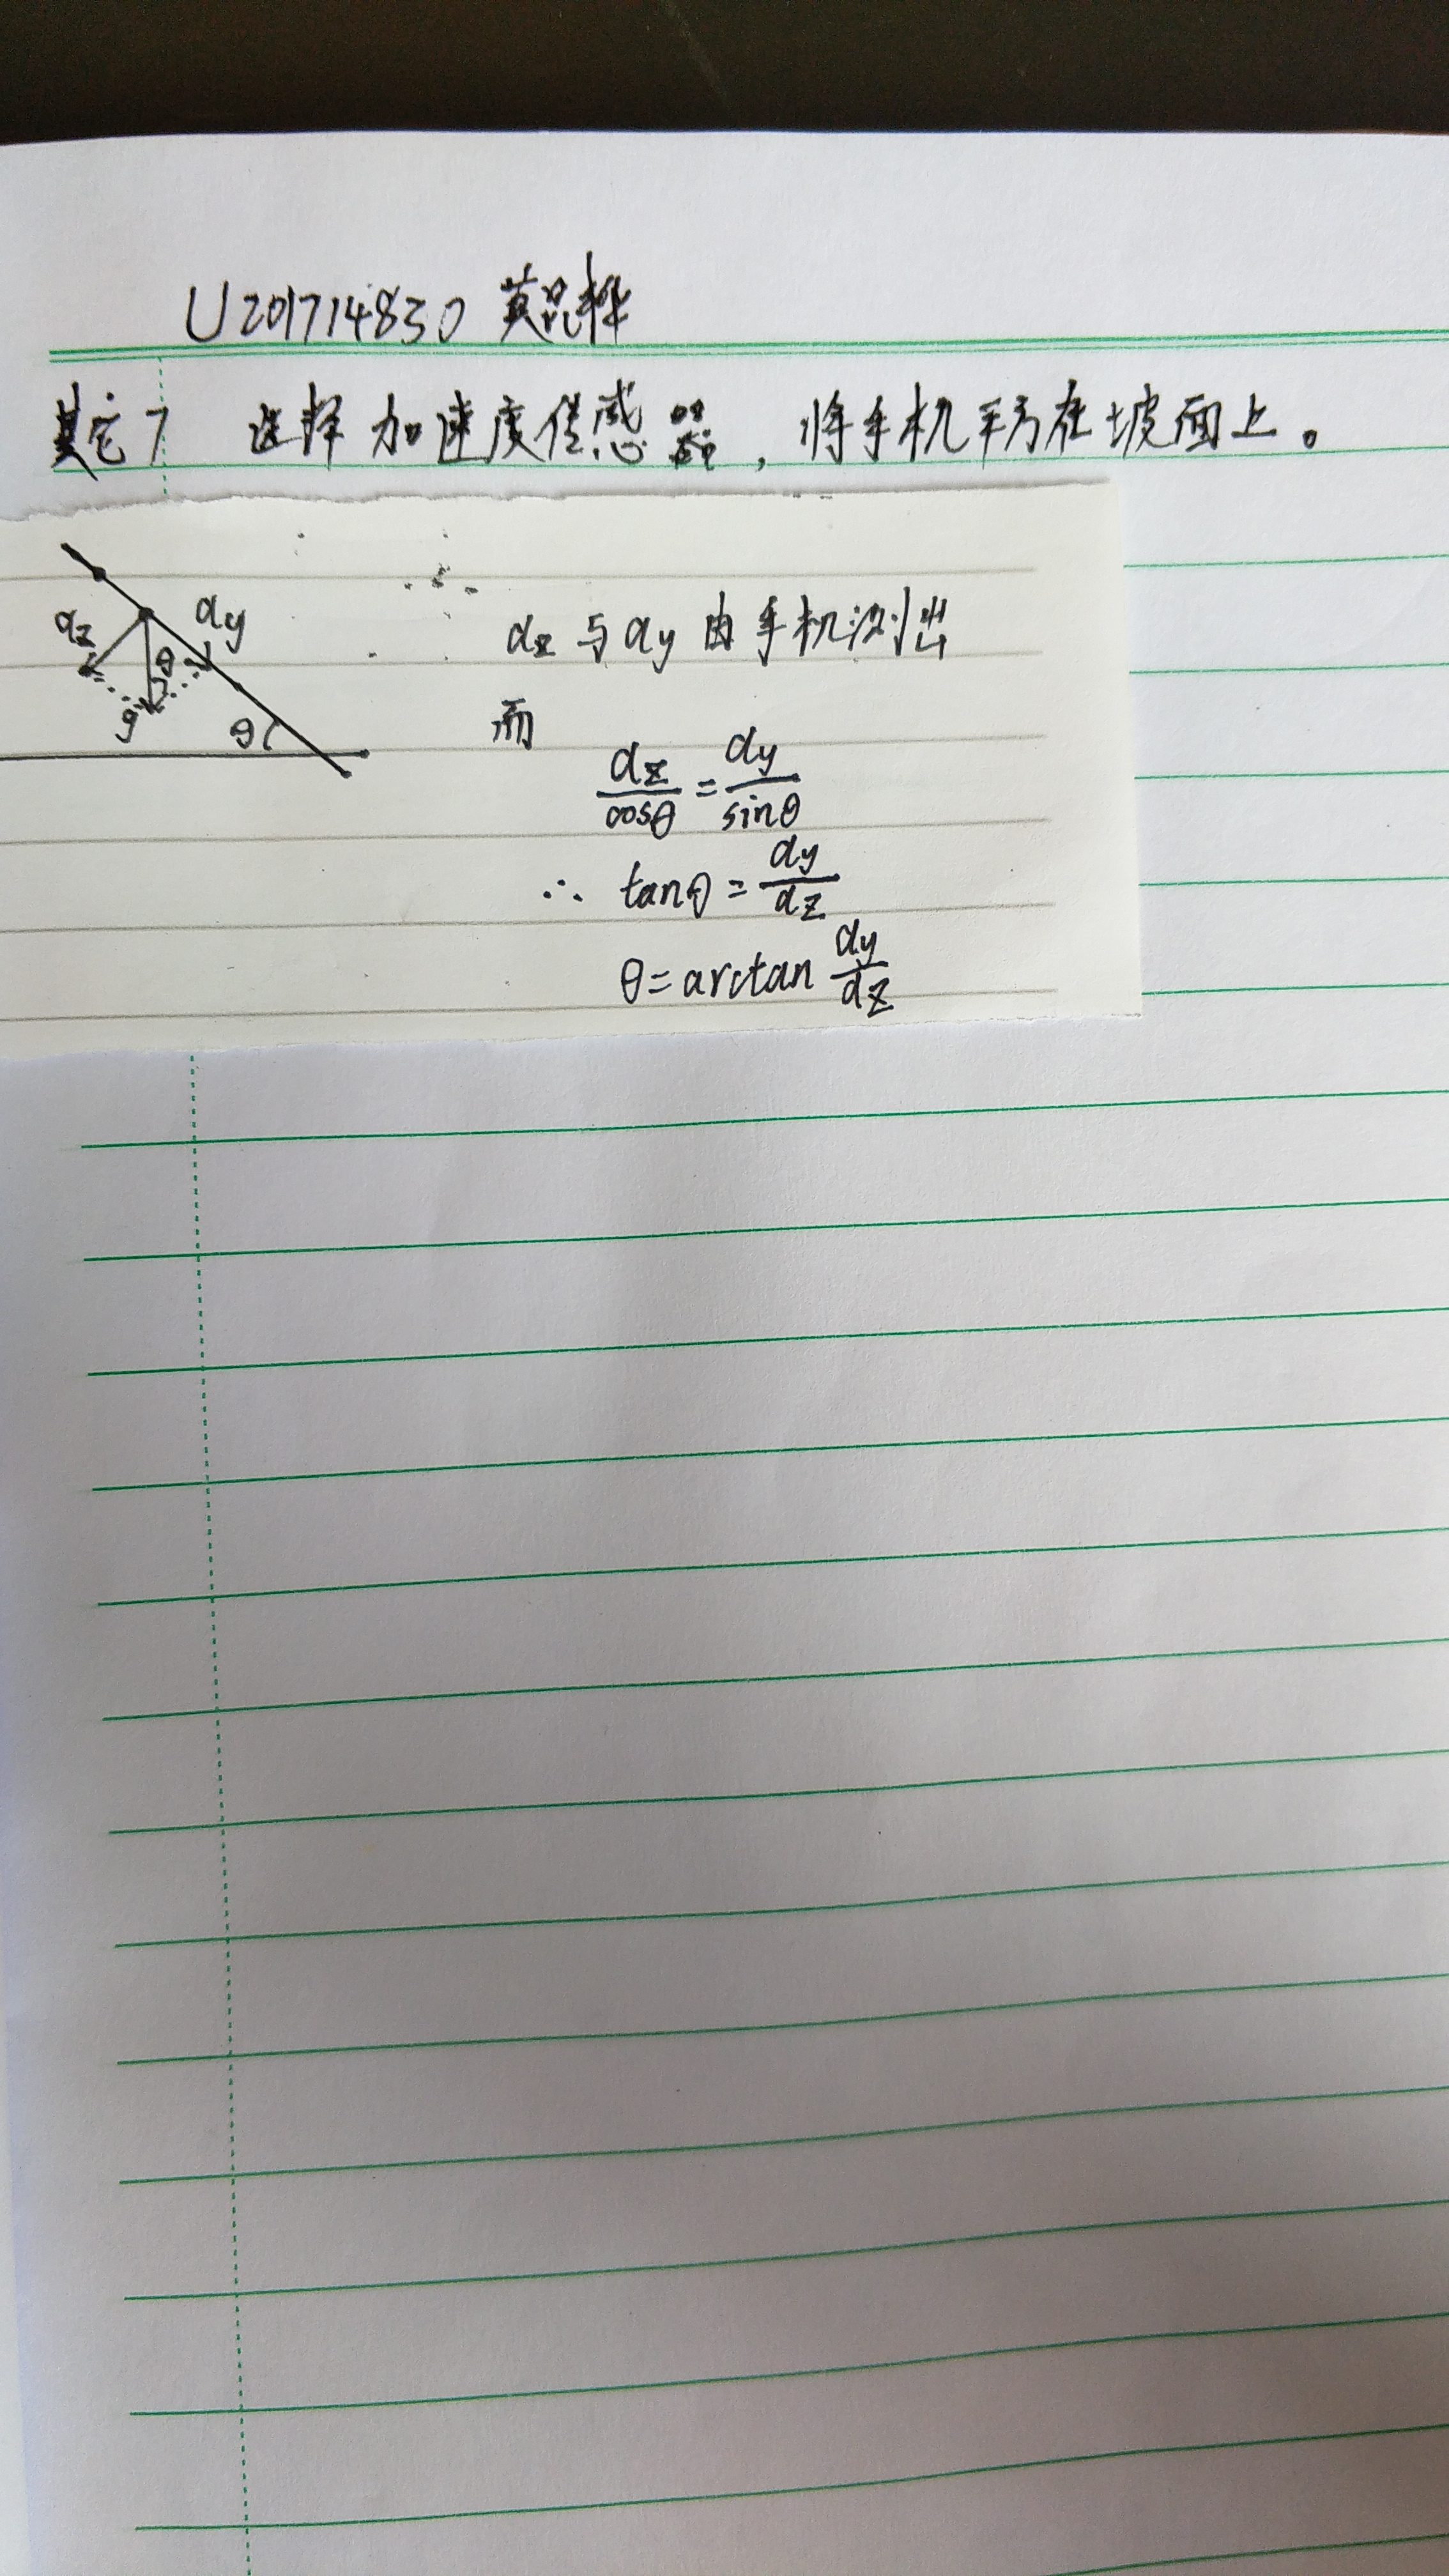 U201714830 莫品桦
其它7 选择加速度传感器，将手机平方在坡面上。
az ay
θ
g θ
az 与 ay 由手机测出
而
az/cosθ = ay/sinθ
∴ tanθ = ay/az
θ = arctan ay/az